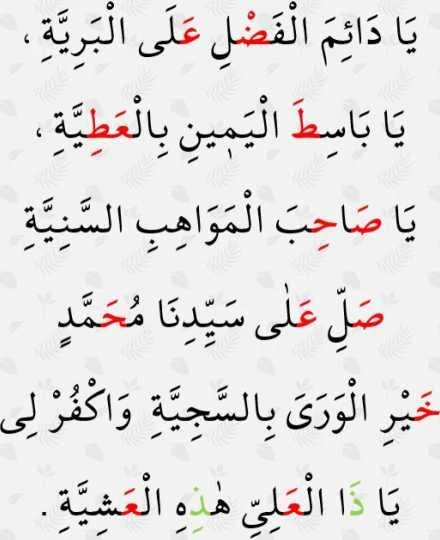 يَا دَائِمَ الْفَضْلِ عَلَى الْبَرِيَّةِ ،
يَا بَاسِطَ الْيَمٖينِ بِالْعَطِيَّةِ ،
يَا صَاحِبَ الْمَوَاهِبِ السَّنِيَّةِ
صَلِّ عَلٰى سَيِّدِنَا مُحَمَّدٍ
خَيْرِ الْوَرَىَ بِالسَّجِيَّةِ وَاكْفُرْ لِى
يَا ذَا الْعَلِىِّ هٰذِهِ الْعَشِيَّةِ .